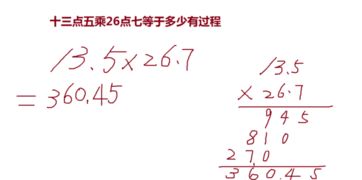 十三点五乘26点七等于多少有过程
13.5×26.7
=360.45
13.5
×26.7
945
810
27.0
360.45